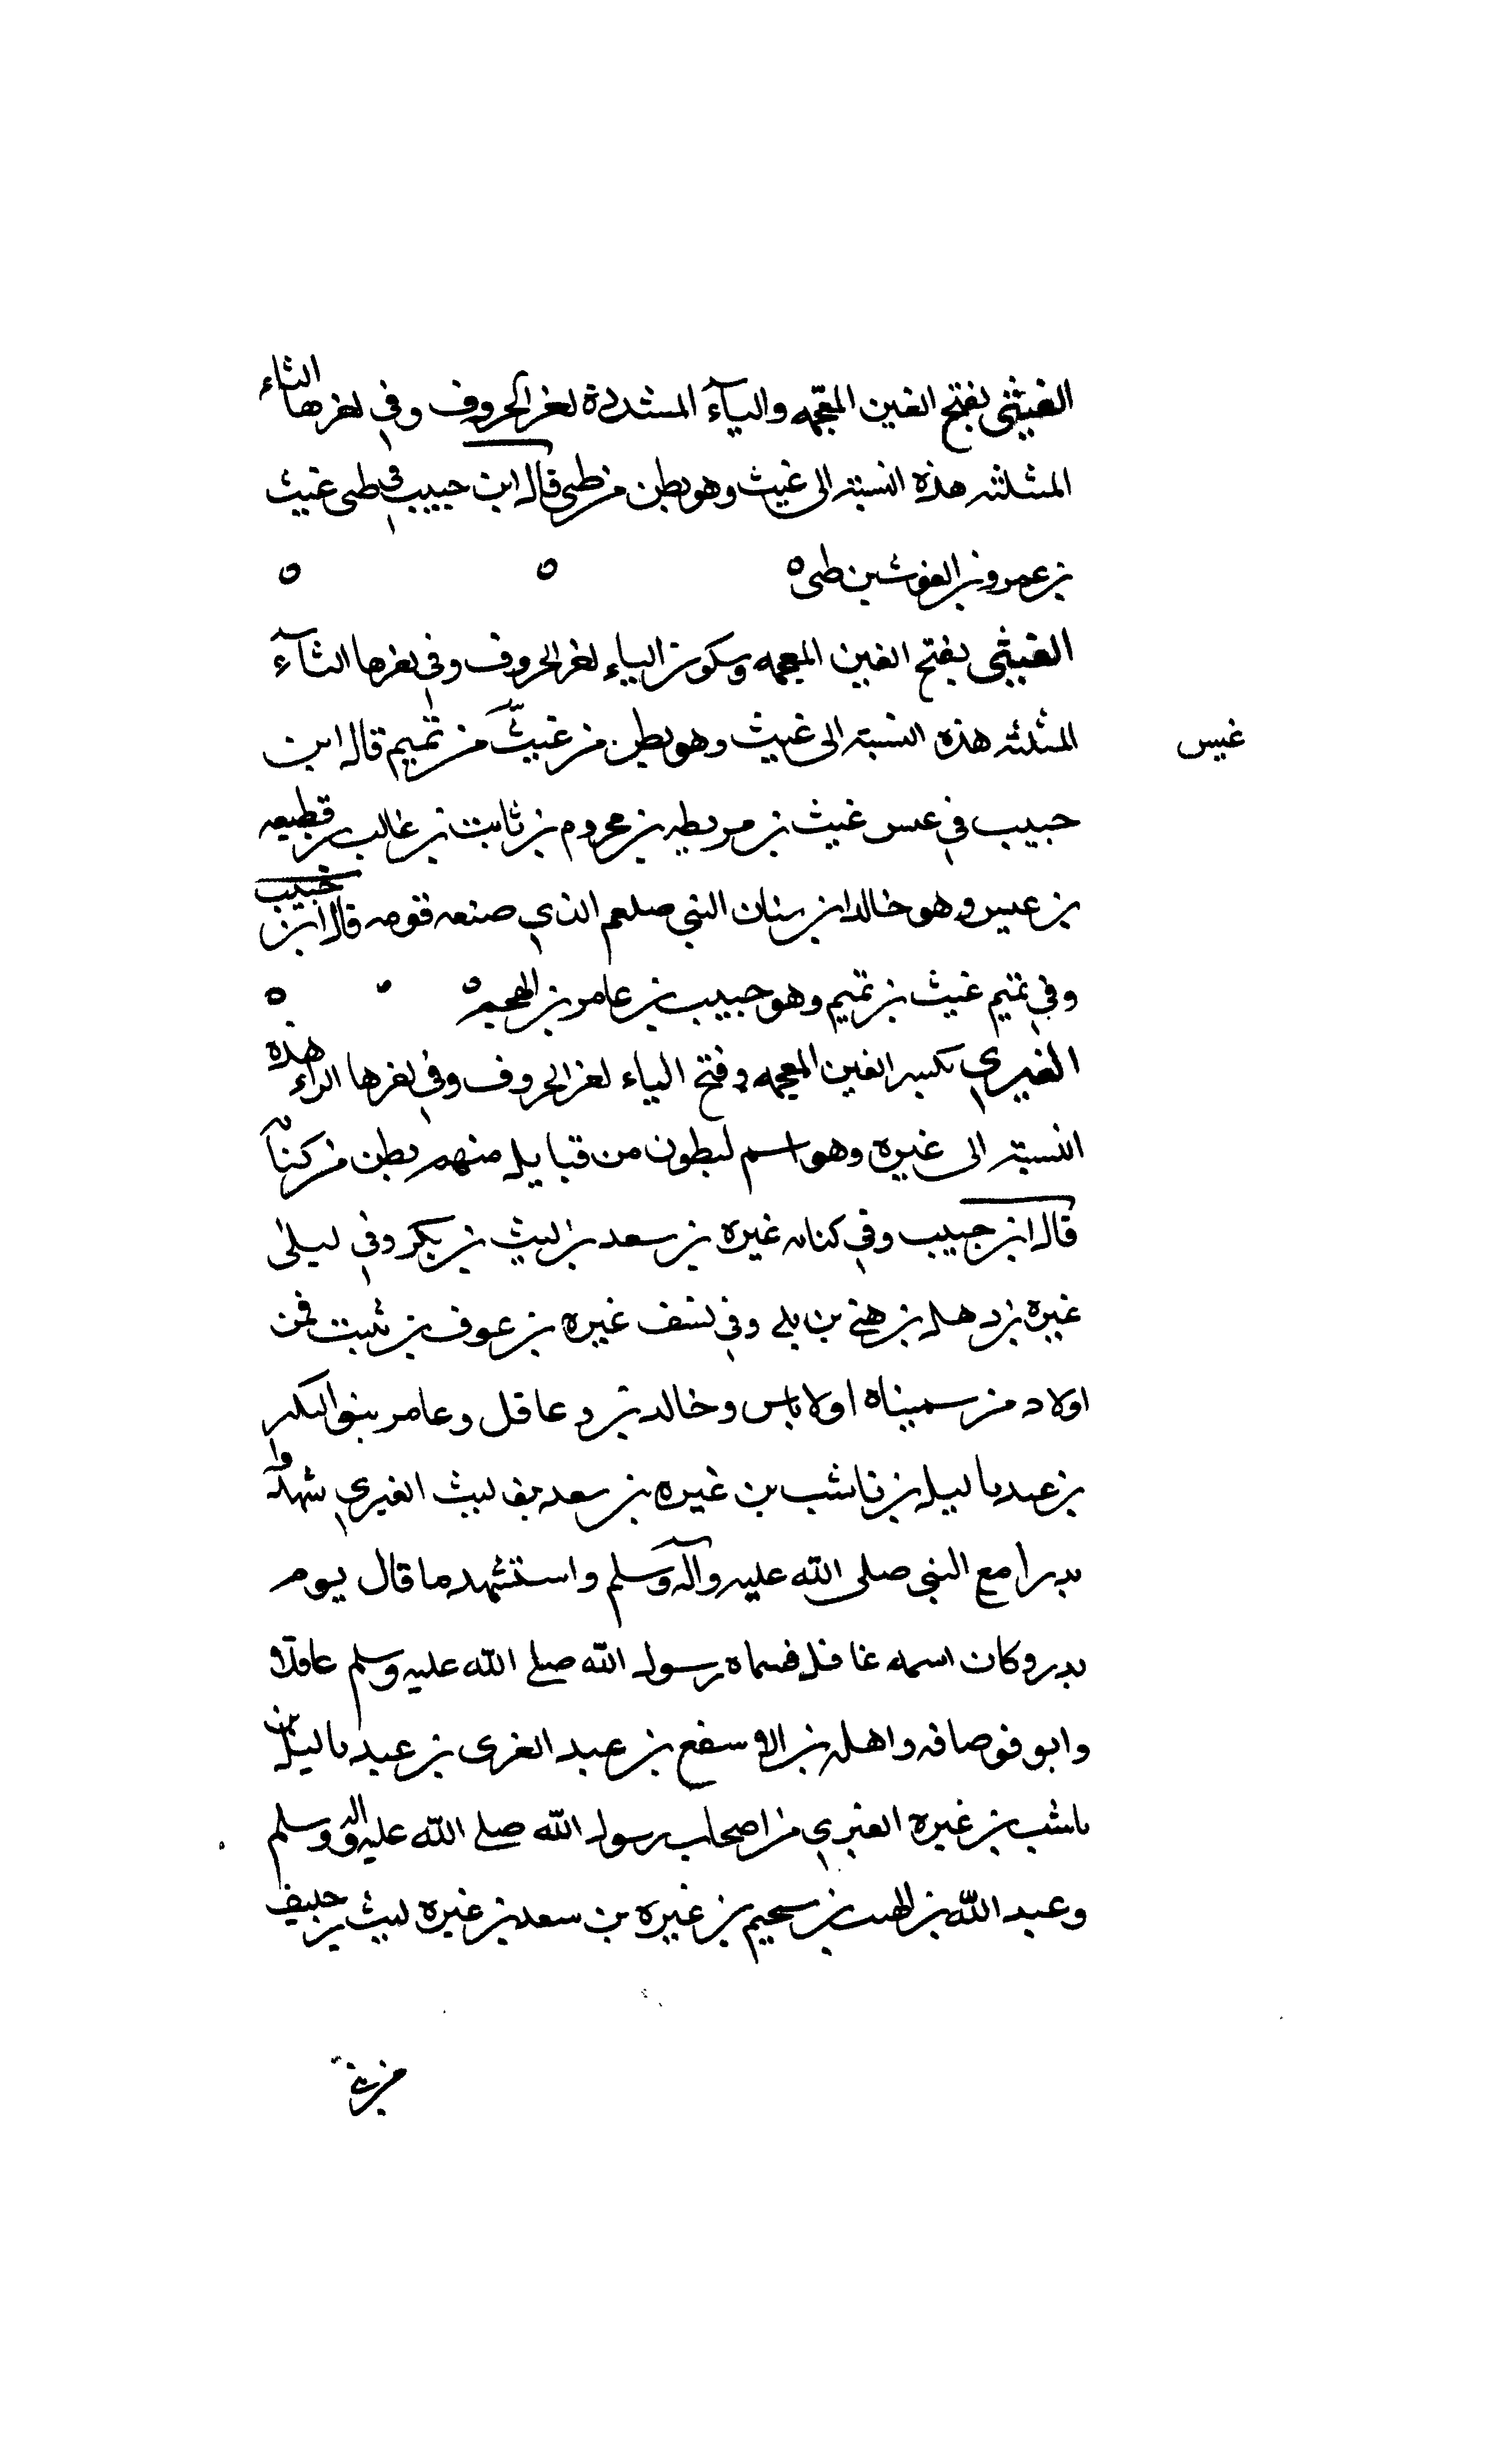 الغيثى بفتح الغين المعجمه واليآء المشددة لغز الحروف وفي لغزها الثاء
المثلثه هذه النسبة الى غيث وهو بطن من طى قال ابن حبيب في طى غيث
بن عمرو بن الغوث بن طى ه ه ه
الغيثى بفتح الغين المعجمه وسكون الياء لغز الحروف وفي لغزها الثآء
المثلثه هذه النسبة الى غيث وهو بطن من غيث من تميم قال ابن
غبس
حبيب في عبس غيث بن مريطه بن مخزوم بن ثابت بن غالب بن قطيعه
بن عبس وهو خالد ابن سنان النبي صلعم الذي صنعه قومه قال ابن حبيب
وفي تميم غيث بن تميم وهو حبيب بن عامر بن الهجيم ه ه
الغيرى بكسر الغين المعجمه وفتح الياء لغز الحروف وفي لغزها الراء هذه
النسبة الى غيره وهو اسم لبطون من قبايل منهم بطن من كنانه
قال ابن حبيب وفي كنانه غيره بن سعد بن ليث بن بكر وفي ليلى
غيره بن دهل بن هني بن بلي وفي ثقف غيره بن عوف بن ثبيت فمن
اولاد من سميناه اولا ياس وخالد بن وعاقل وعامر بنو البكير
بن عبد ياليل بن ناشب بن غيره بن سعد بن ليث الغيري شهدوا
بدرا مع النبي صلى الله عليه وآله وسلم واستشهد ما قال يوم
بدر وكان اسمه غافل فسماه رسول الله صلى الله عليه وسلم عاقلا
وابو فوصافه واهله بن الاسفع بن عبد العزى بن عبد ياليل بن
ناشب بن غيره الغيري من اصحاب رسول الله صلى الله عليه واله وسلم
وعبد الله بن الهب بن سحيم بن غيره بن سعد بن غيره ليث بن حليف